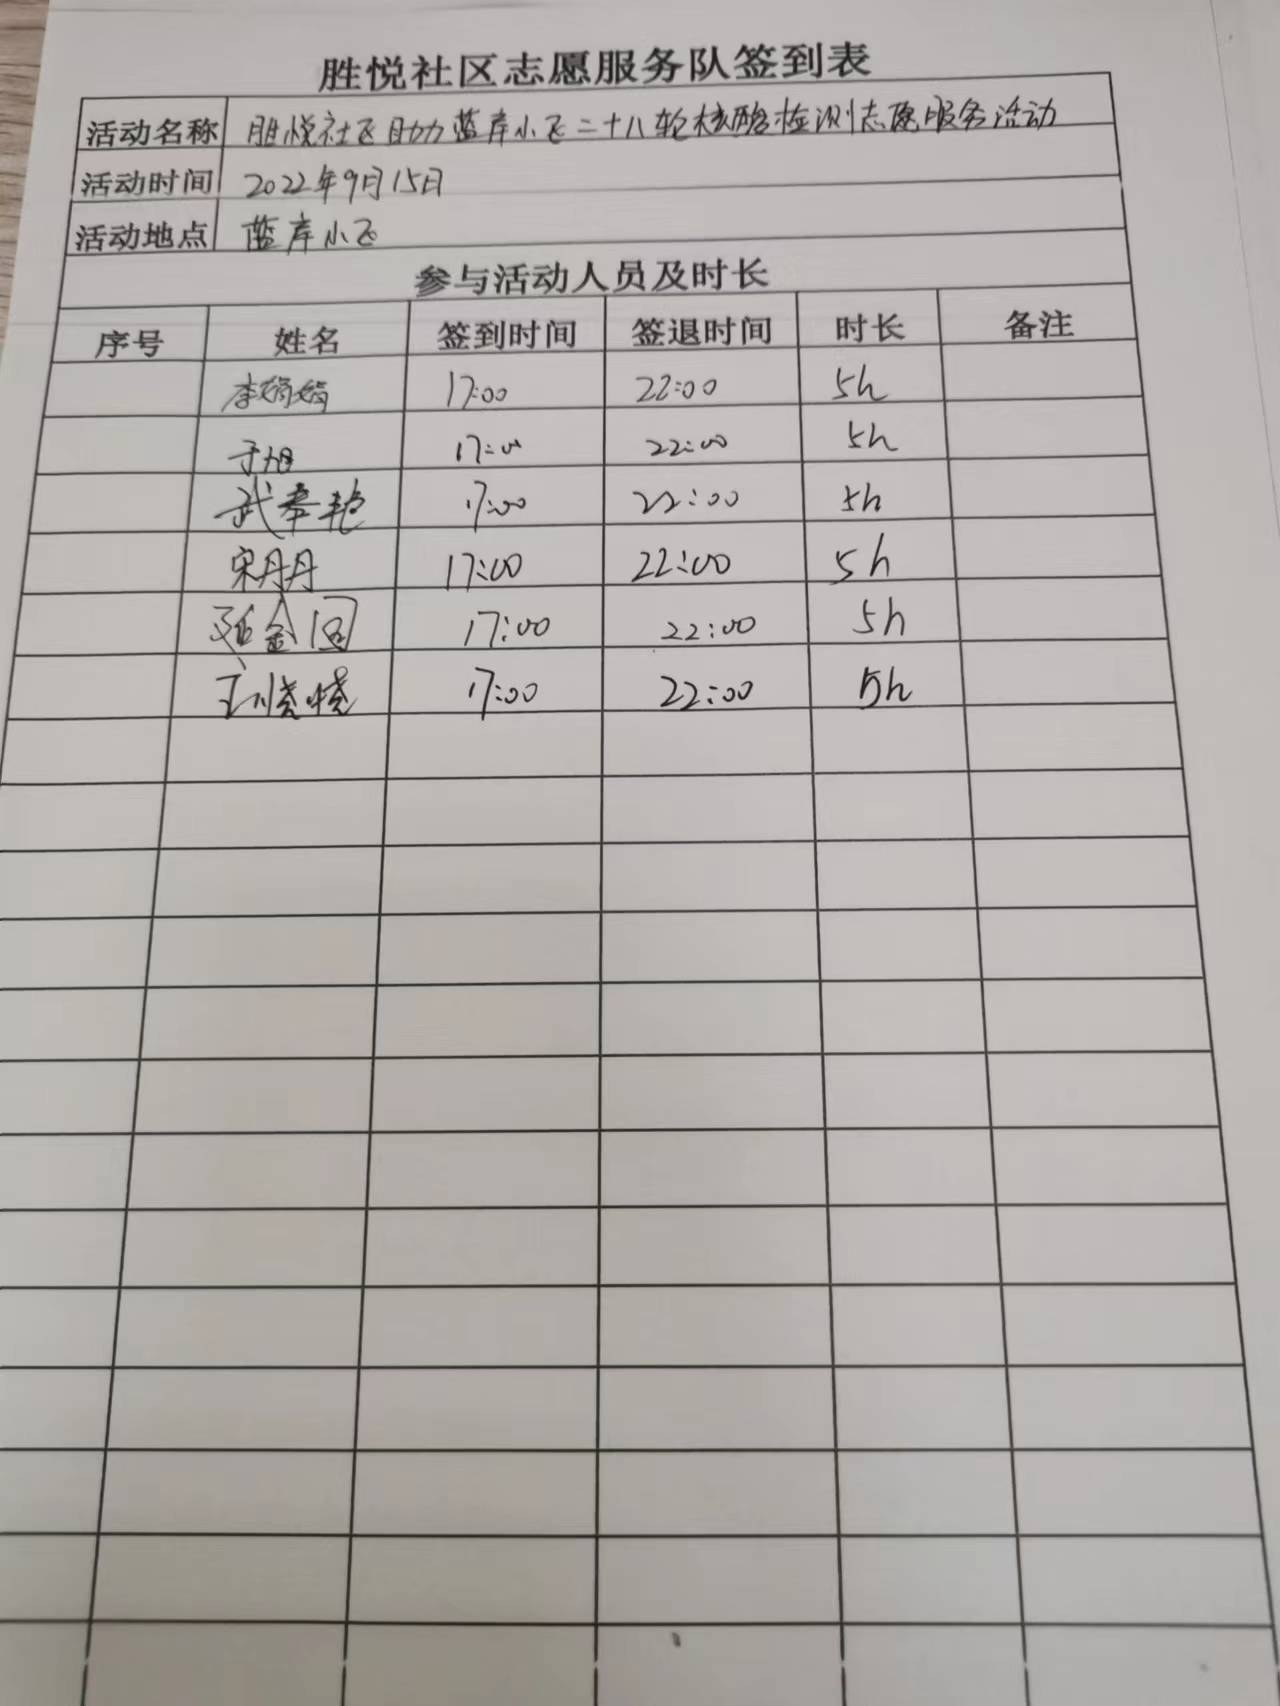 胜悦社区志愿服务队签到表
活动名称 胜悦社区助力蓝岸小区二十八轮核酸检测志愿服务活动
活动时间 2022年9月15日
活动地点 蓝岸小区
参与活动人员及时长
序号 姓名 签到时间 签退时间 时长 备注
李娟娟 17:00 22:00 5h
于旭 17:00 22:00 5h
武春艳 17:00 22:00 5h
宋丹丹 17:00 22:00 5h
17:00 22:00 5h
王晓晓 17:00 22:00 5h